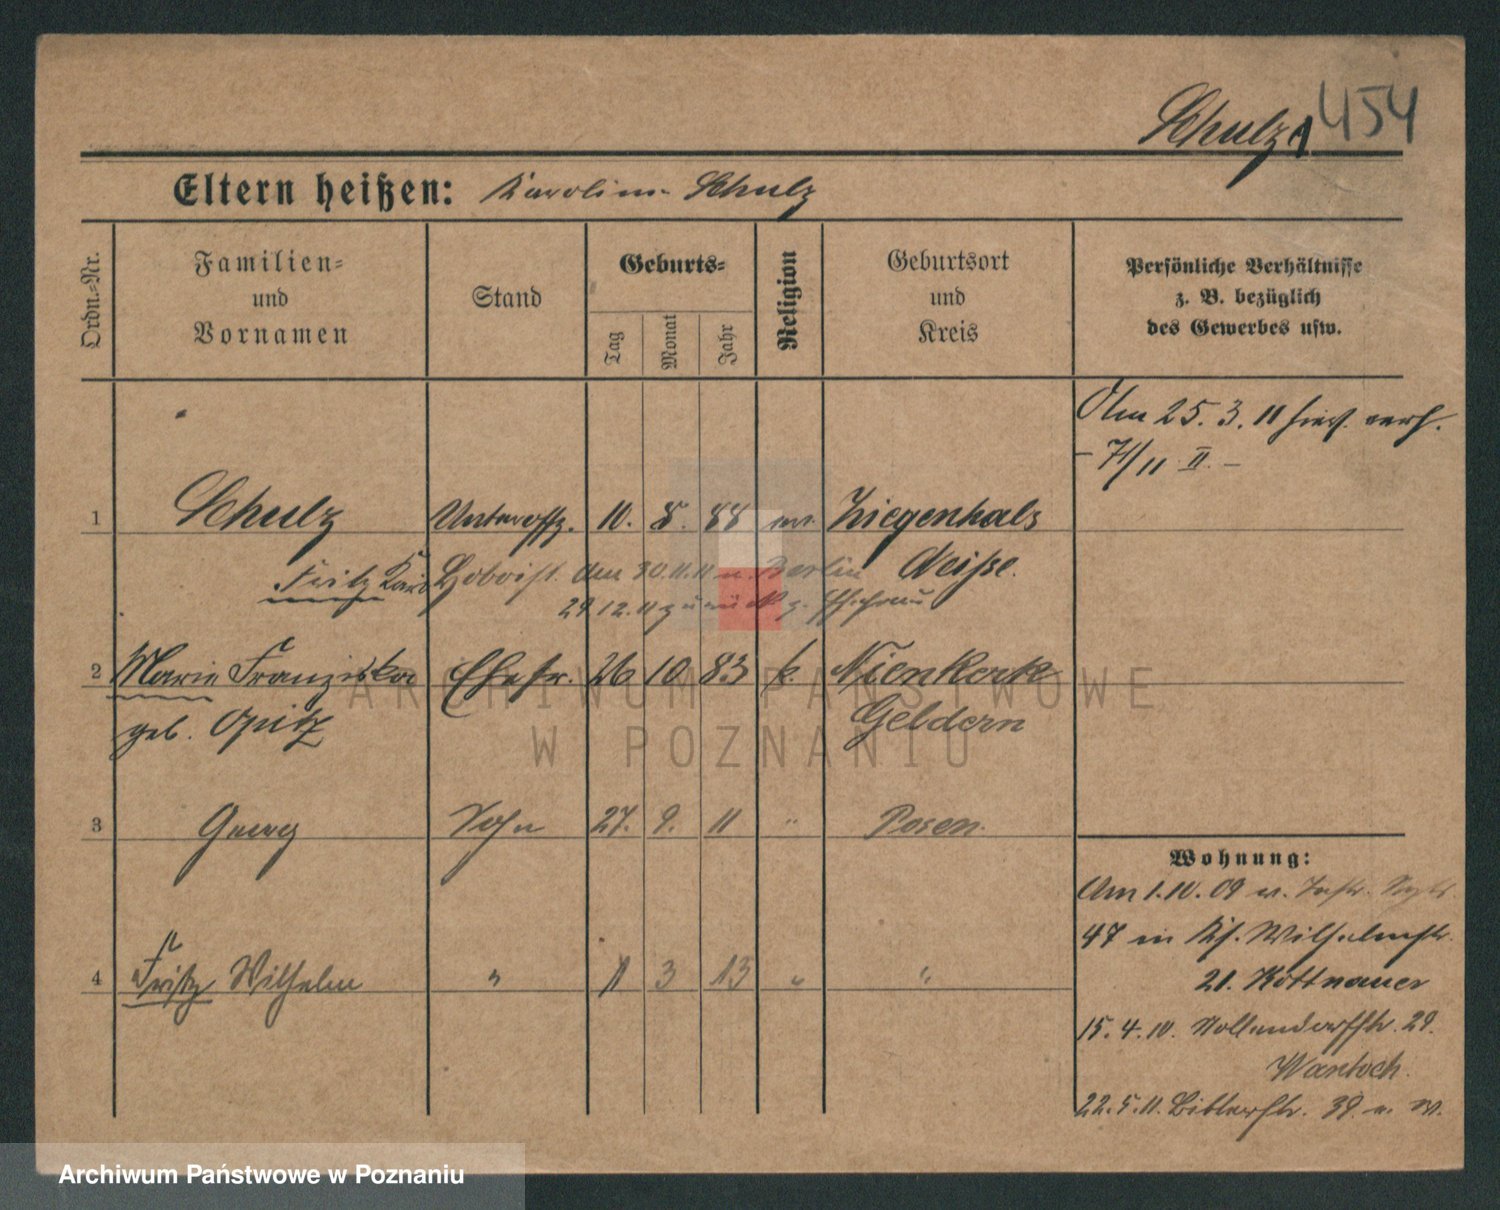 Schulz 454
Eltern heißen: Karoline Schulz
Ordn.-Nr.
Familien-
und
Vornamen
Stand
Geburts-
Tag
Monat
Jahr
Religion
Geburtsort
und
Kreis
Persönliche Verhältnisse
z. B. bezüglich
des Gewerbes usw.
Am 25. 3. 11 hier verh.
- 71/11 II. -
1 Schulz Unteroffz. 10. 8. 88 ev. Ziegenhals
Fritz Karl Hoboist Am 30.11.11 n. Berlin Neiße.
29.12.11 zurück z. Ehefrau
2 Marie Franziska Ehefr. 26 10 83 k. Nienkerk
geb. Opitz Geldern
3 Georg Sohn 27. 9. 11 " Posen.
4 Fritz Wilhelm " 1 3 13 " "
Wohnung:
Am 1.10.09 v. Inftr. Rgt.
47 in Ks. Wilhelmstr.
21. Kottnauer
15. 4. 10. Nollendorfstr. 29.
Wantoch.
22. 5. 11. Bitterstr. 39
ARCHIWUM PAŃSTWOWE
W POZNANIU
Archiwum Państwowe w Poznaniu